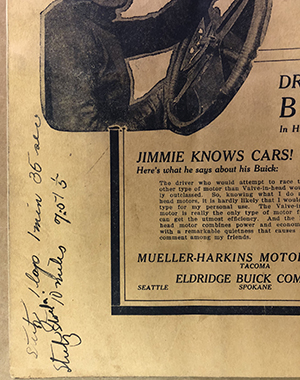 DR
B
In H
JIMMIE KNOWS CARS!
Here's what he says about his Buick:
The driver who would attempt to race t
other type of motor than Valve-in-head wou
ly outclassed. So, knowing what I do
head motors, it is hardly likely that I would
type for my personal use. The Valve-i
motor is really the only type of motor f
can get the utmost efficiency. And the
head motor combines power and econom
with a remarkable quietness that causes
comment among my friends.
MUELLER-HARKINS MOTOR
TACOMA
ELDRIDGE BUICK COM
SEATTLE SPOKANE
1 lap 1 min 36 sec
Stutz 10 miles 7:51 5